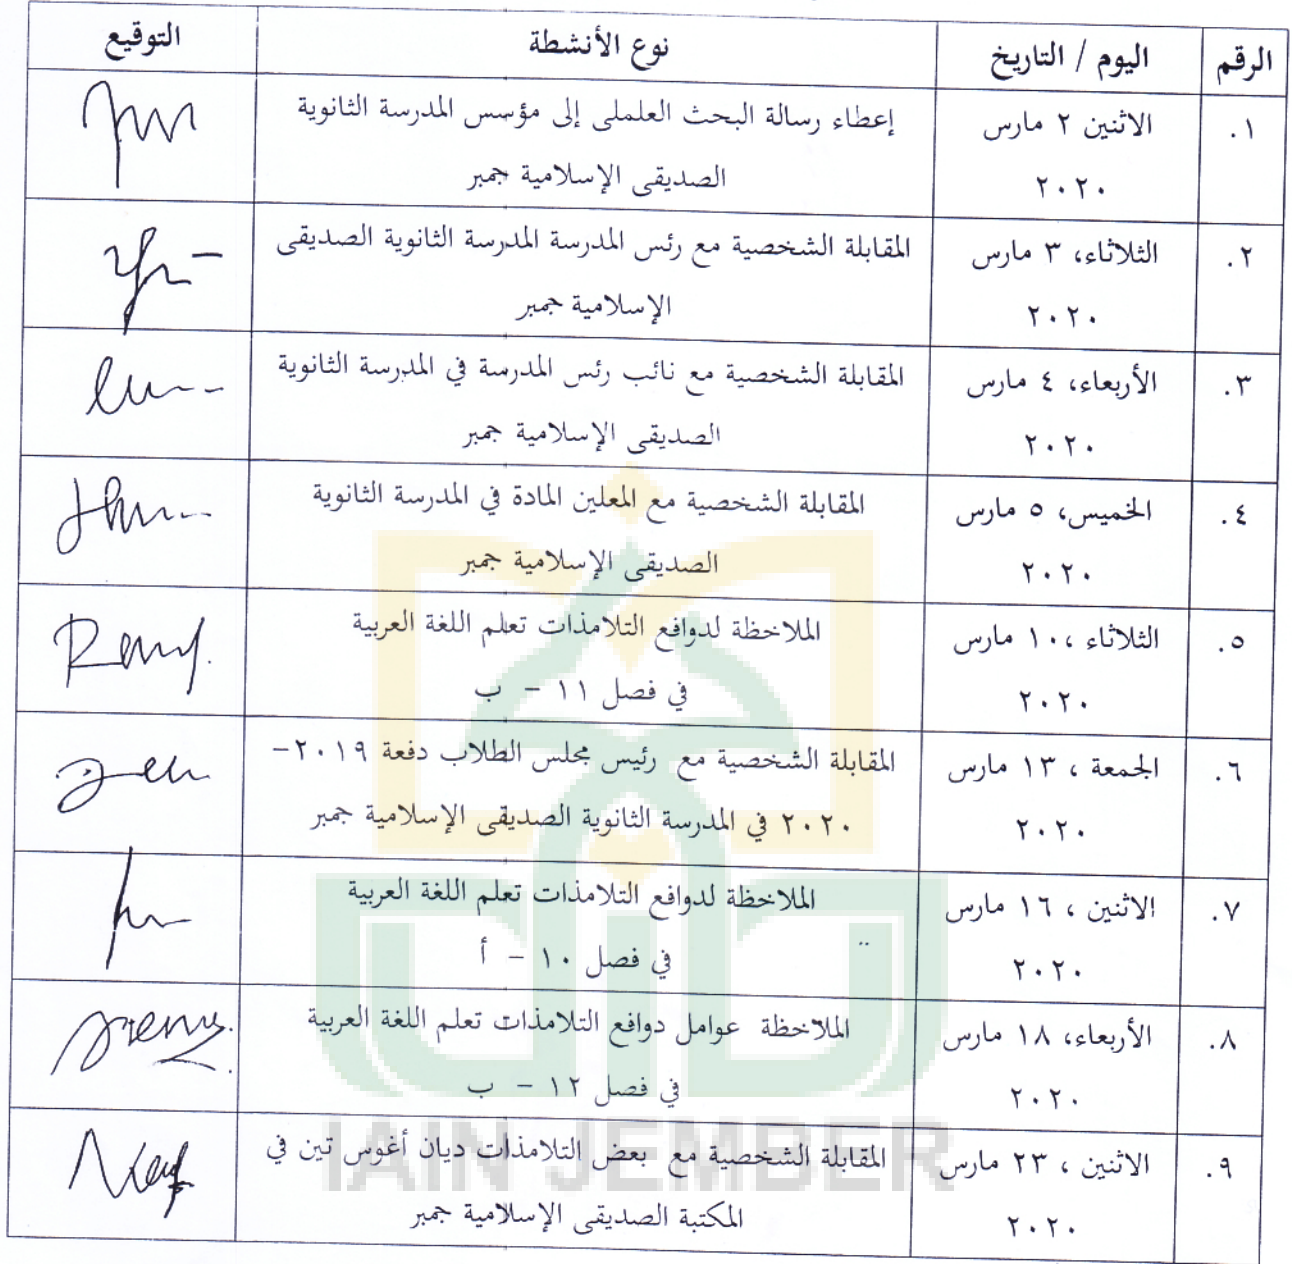 الرقم اليوم / التاريخ نوع الأنشطة التوقيع
١. الاثنين ٢ مارس إعطاء رسالة البحث العلملى إلى مؤسس المدرسة الثانوية
٢٠٢٠ الصديقى الإسلامية جمبر
٢. الثلاثاء، ٣ مارس المقابلة الشخصية مع رئس المدرسة المدرسة الثانوية الصديقى
٢٠٢٠ الإسلامية جمبر
٣. الأربعاء، ٤ مارس المقابلة الشخصية مع نائب رئس المدرسة في المدرسة الثانوية
٢٠٢٠ الصديقى الإسلامية جمبر
٤. الخميس، ٥ مارس المقابلة الشخصية مع المعلين المادة في المدرسة الثانوية
٢٠٢٠ الصديقى الإسلامية جمبر
٥. الثلاثاء ،١٠ مارس الملاخظة لدوافع التلامذات تعلم اللغة العربية
٢٠٢٠ في فصل ١١ - ب
٦. الجمعة ، ١٣ مارس المقابلة الشخصية مع رئيس مجلس الطلاب دفعة ٢٠١٩-
٢٠٢٠ ٢٠٢٠ في المدرسة الثانوية الصديقى الإسلامية جمبر
٧. الاثنين ، ١٦ مارس الملاخظة لدوافع التلامذات تعلم اللغة العربية
٢٠٢٠ في فصل ١٠ - أ
٨. الأربعاء، ١٨ مارس الملاخظة عوامل دوافع التلامذات تعلم اللغة العربية
٢٠٢٠ في فصل ١٢ - ب
٩. الاثنين ، ٢٣ مارس المقابلة الشخصية مع بعض التلامذات ديان أغوس تين في
٢٠٢٠ المكتبة الصديقى الإسلامية جمبر
IAIN JEMBER